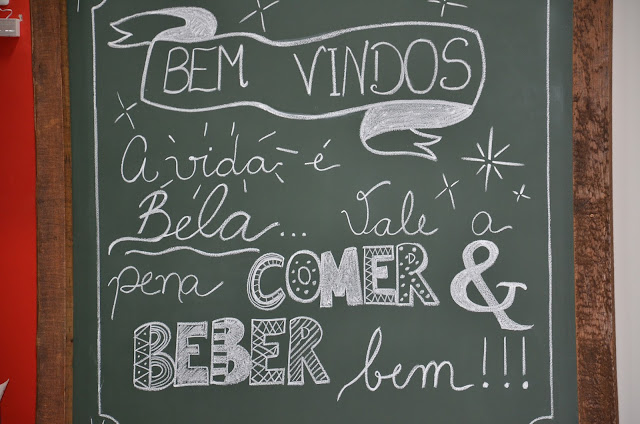 BEM VINDOS
A vida é
Bela... Vale a
pena COMER &
BEBER bem!!!